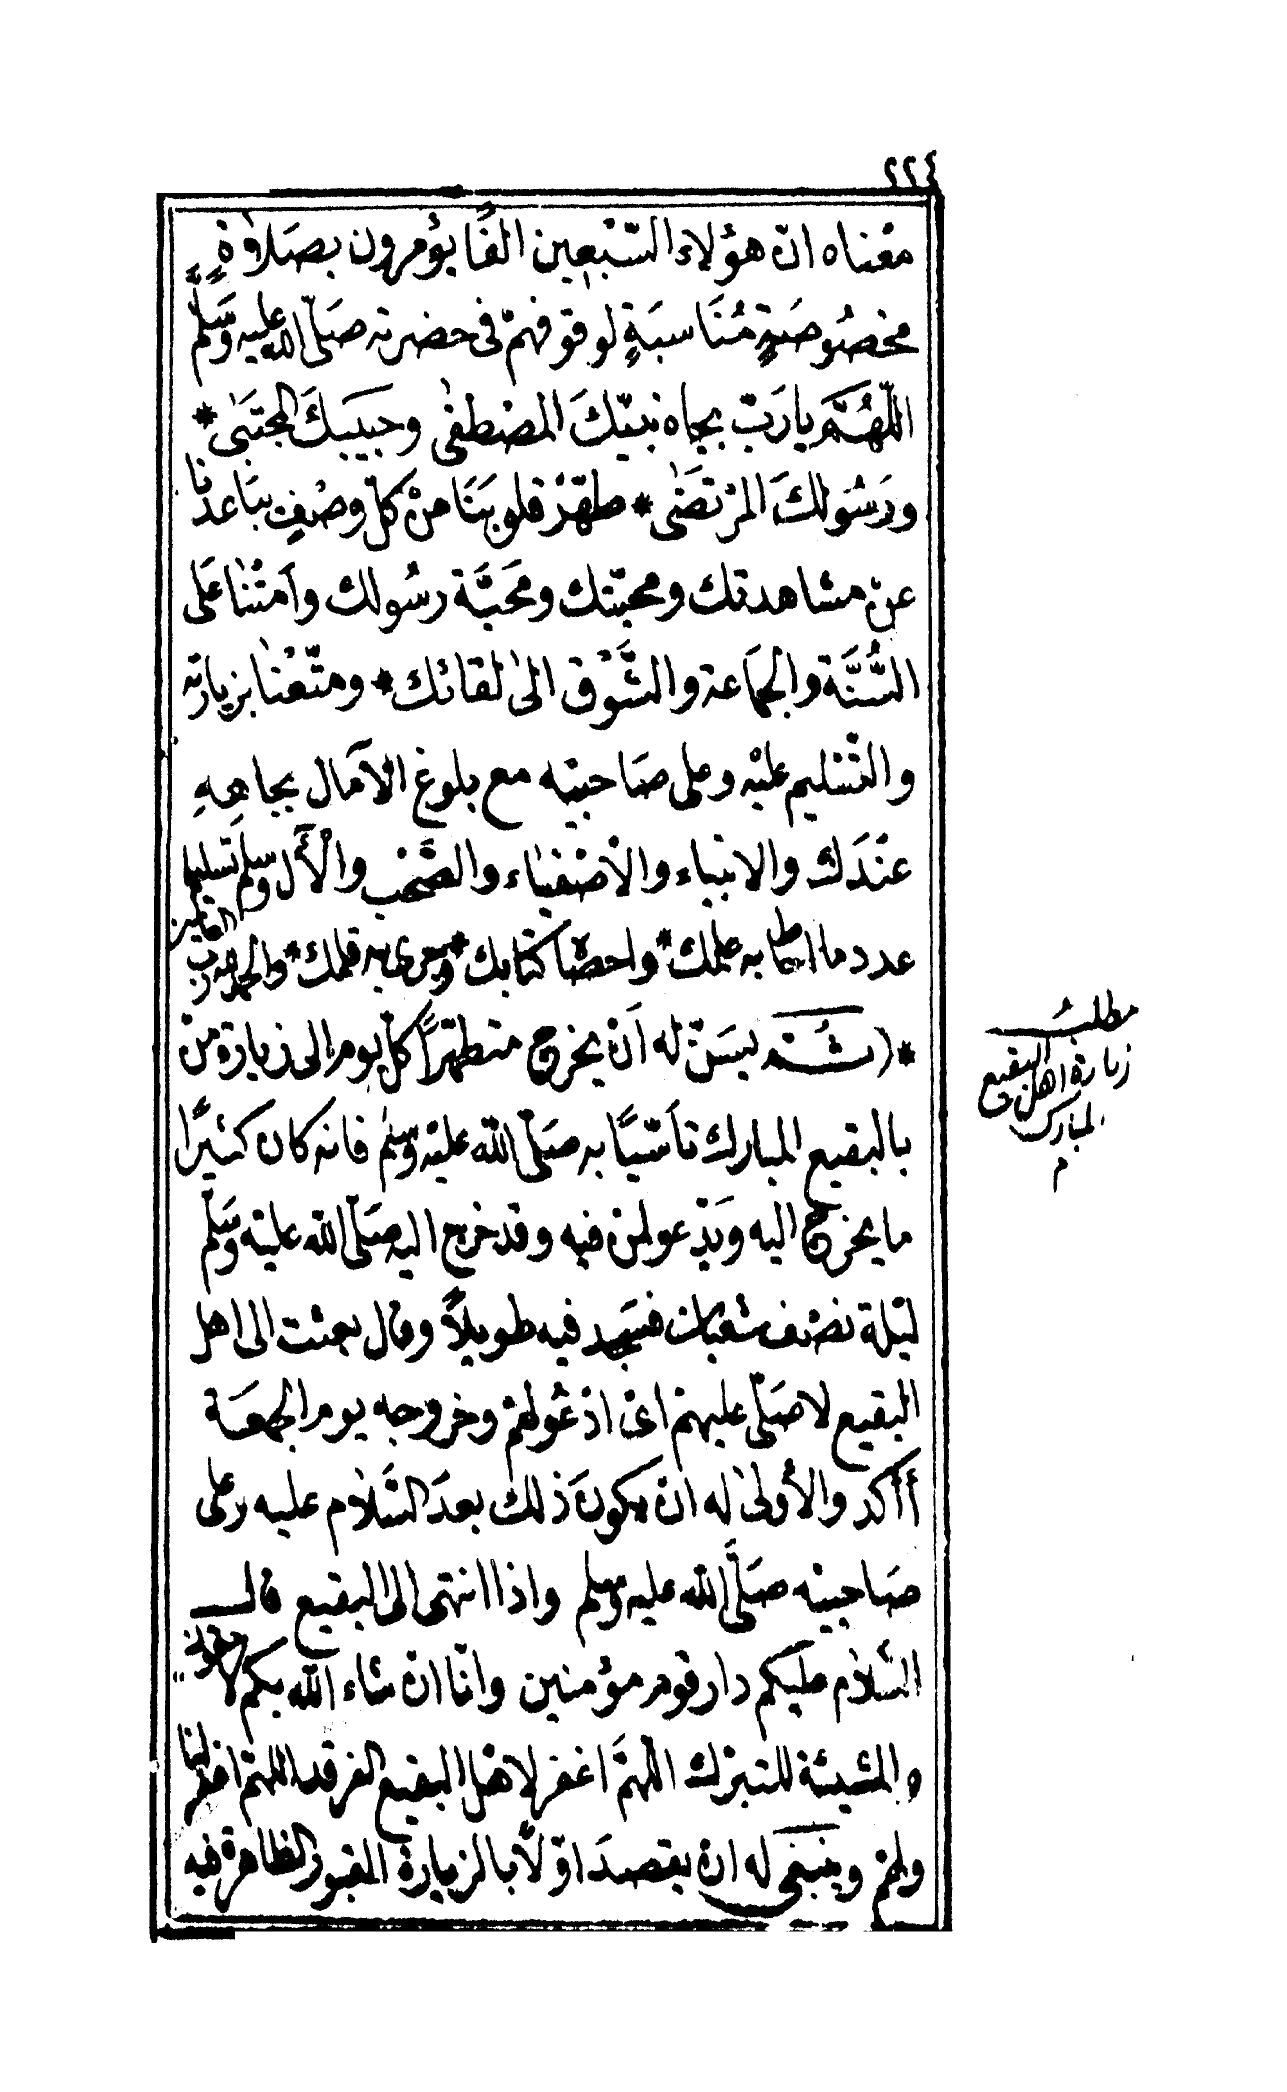 ٢٢٤
معناه انّ هؤلاء السّبعين الفًا يؤمرون بصَلاوٰةٍ
مخصُوصَةٍ مُنَاسبَةٍ لوقوفهمْ فى حضرته صَلّى الله عليه وَسَلّم
اللّهُمَّ يارَبّ بجاه نبيّكَ المصْطفىٰ وحبيبكَ المجتَبىٰ *
ورَسُولكَ المرْتضَىٰ * طهّرْ قلوبنَا منْ كلّ وصْفٍ يبَاعدنا
عنْ مشاهدتك ومحبّتك ومَحَبَّة رسُولك وَاَمتْنٰا عَلى
السُّنَّة والجمَاعة والشَّوْق الىٰ لقائك * ومتّعْنٰا بزيارته
والتّسْليم عليْه وعلى صَاحبيْه مع بلوغ الآمَال بجاهِهِ
عنْدَكَ والانبيٰاء والاْصْفيٰاء والصَّحْب والْاٰل وسلم تسليما
عدد ما احاط به علمك * واحصَاه كتابك * وجرى به قلمك * والحمد لله رب العالمين
* (تتْمه) يسَنّ له اَنْ يخرج متطهّرًا كلّ يوم الى زيارة منْ
بالبقيع المبارك تأسّيًا به صَلّى الله عليْه وسلم فانه كان كثيرًا
ما يخرج اليه ويَدْعو لمنْ فيه وقد خرج اليه صَلّى الله عليْه وَسَلّم
ليْلة نصْف شعْبان فسَجد فيه طويلاً وقال بعثت الى اهل
البقيع لاصَلّى عليهمْ اىْ ادْعُو لهمْ وخروجه يوم الجمعَة
أأكد والأولىٰ له انْ يكونَ ذلك بعدَ السَّلاٰم عليه وعلى
صَاحبيْه صَلَّى الله عليه وسلم واذا انتهى الى البقيع قال
السّلاٰم عليكم دار قوم مؤمنين وانّا انْ شاء الله بكم لاحقون
والمشيئة للتبرّك اللّهمَّ اغفر لاهْل البقيع الغرقد اللهمّ اغفر لنا
ولهمْ وينبغى له انْ يقصدَ اوّلاً بالزيارة القبور الظاهرة فيه
مطلب
زيارة اهل البقيع
المبارك
م